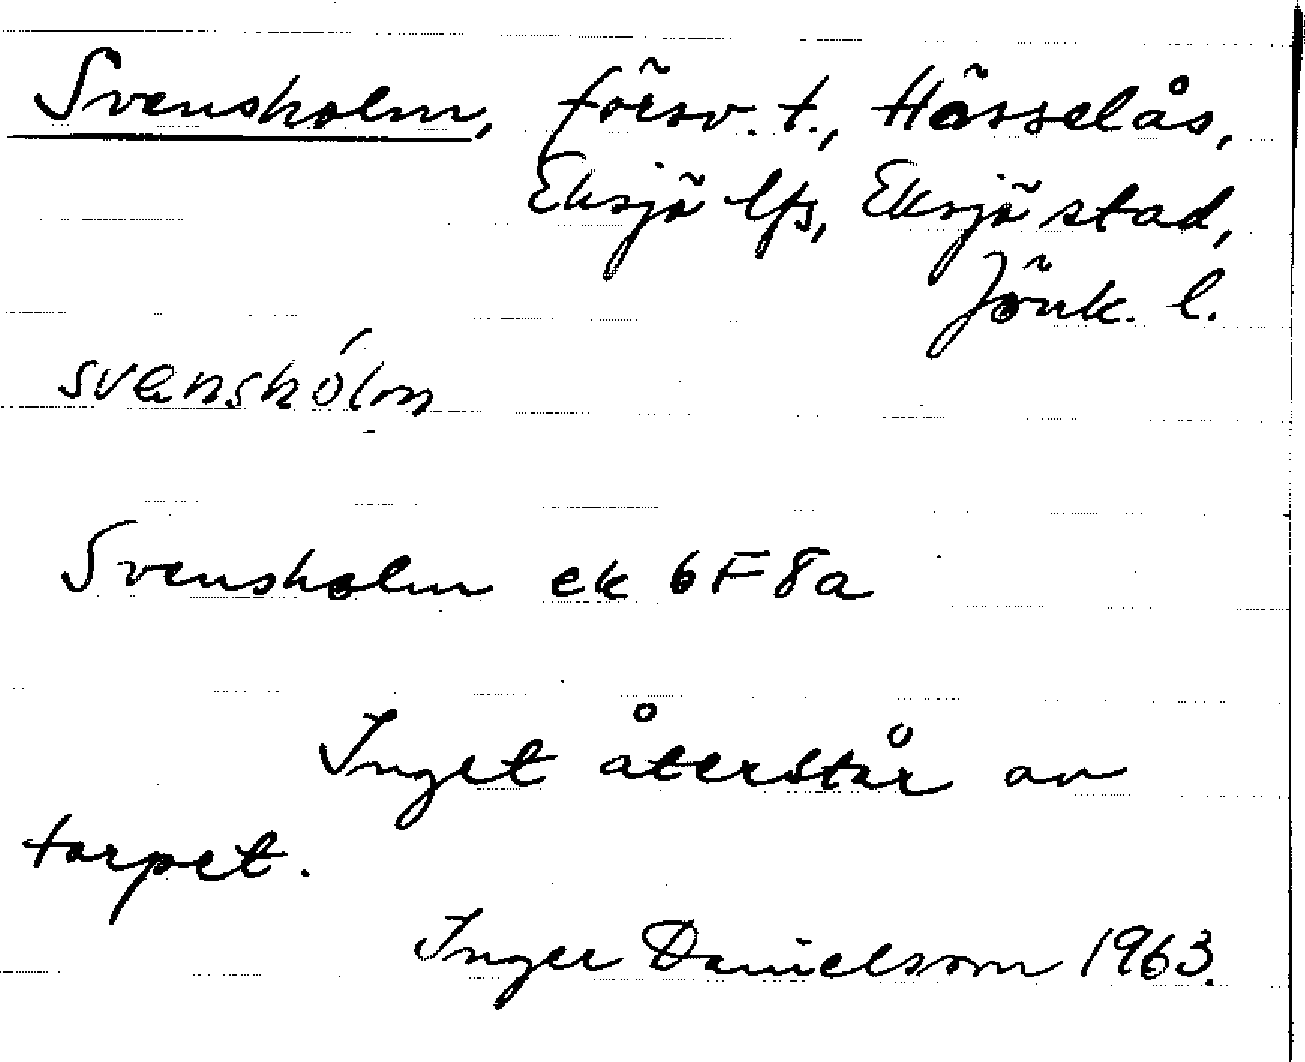 Svensholm, försv. t., Hässelås,
Eksjö lfs, Eksjö stad,
Jönk. l.
svenshólm
Svensholm ek 6F8a
Inget återstår av
torpet.
Inger Danielsson 1963.